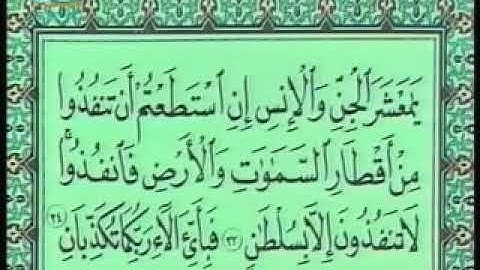 يَٰمَعْشَرَ ٱلْجِنِّ وَٱلْإِنسِ إِنِ ٱسْتَطَعْتُمْ أَن تَنفُذُوا۟
مِنْ أَقْطَارِ ٱلسَّمَٰوَٰتِ وَٱلْأَرْضِ فَٱنفُذُوا۟ۚ
لَا تَنفُذُونَ إِلَّا بِسُلْطَٰنٍ ٣٣ فَبِأَىِّ ءَالَآءِ رَبِّكُمَا تُكَذِّبَانِ ٣٤